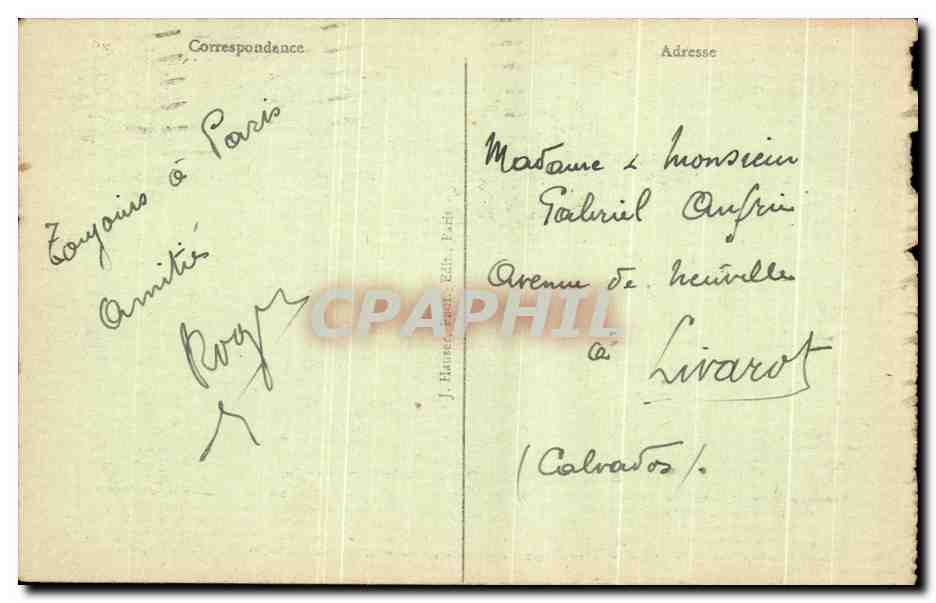 Correspondance
Toujours à Paris
Amitiés
Roger
J. Hauser, Phot. Edit., Paris
Adresse
Madame & Monsieur
Gabriel
Avenue de Neuville
à Livarot
(Calvados).
CPAPHIL